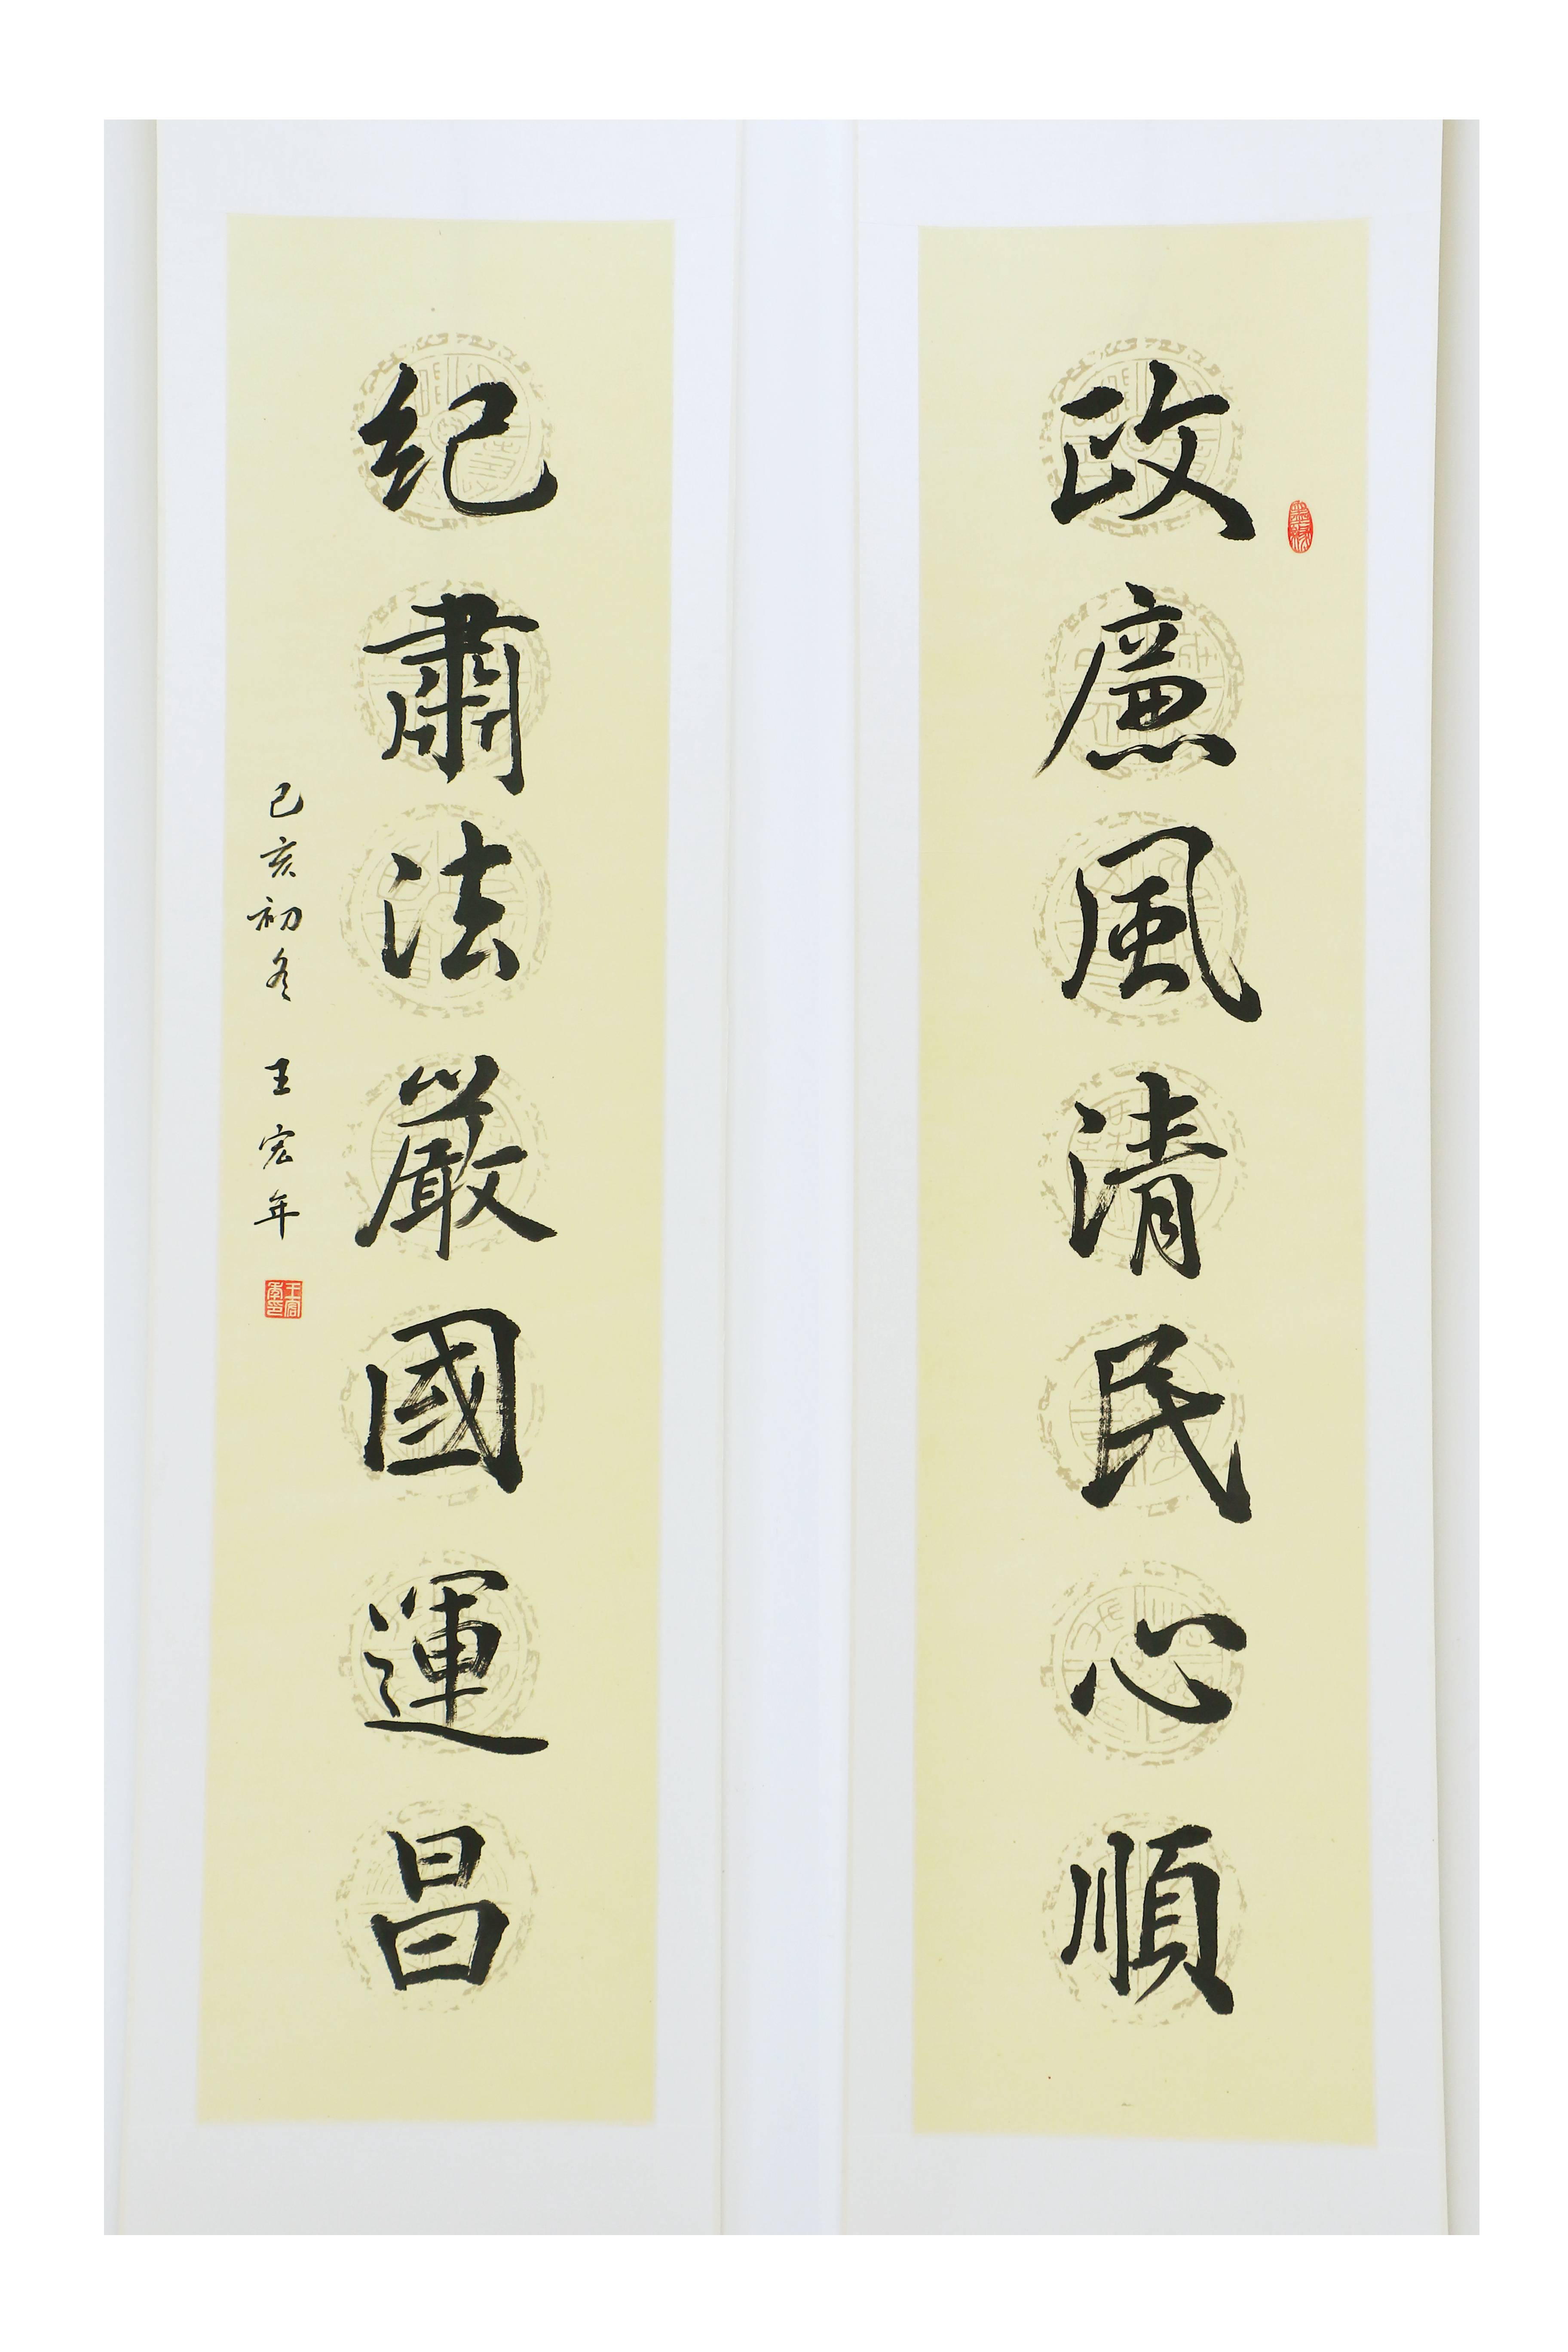 政廉風清民心順
纪肅法嚴國運昌
己亥初冬 王宏年